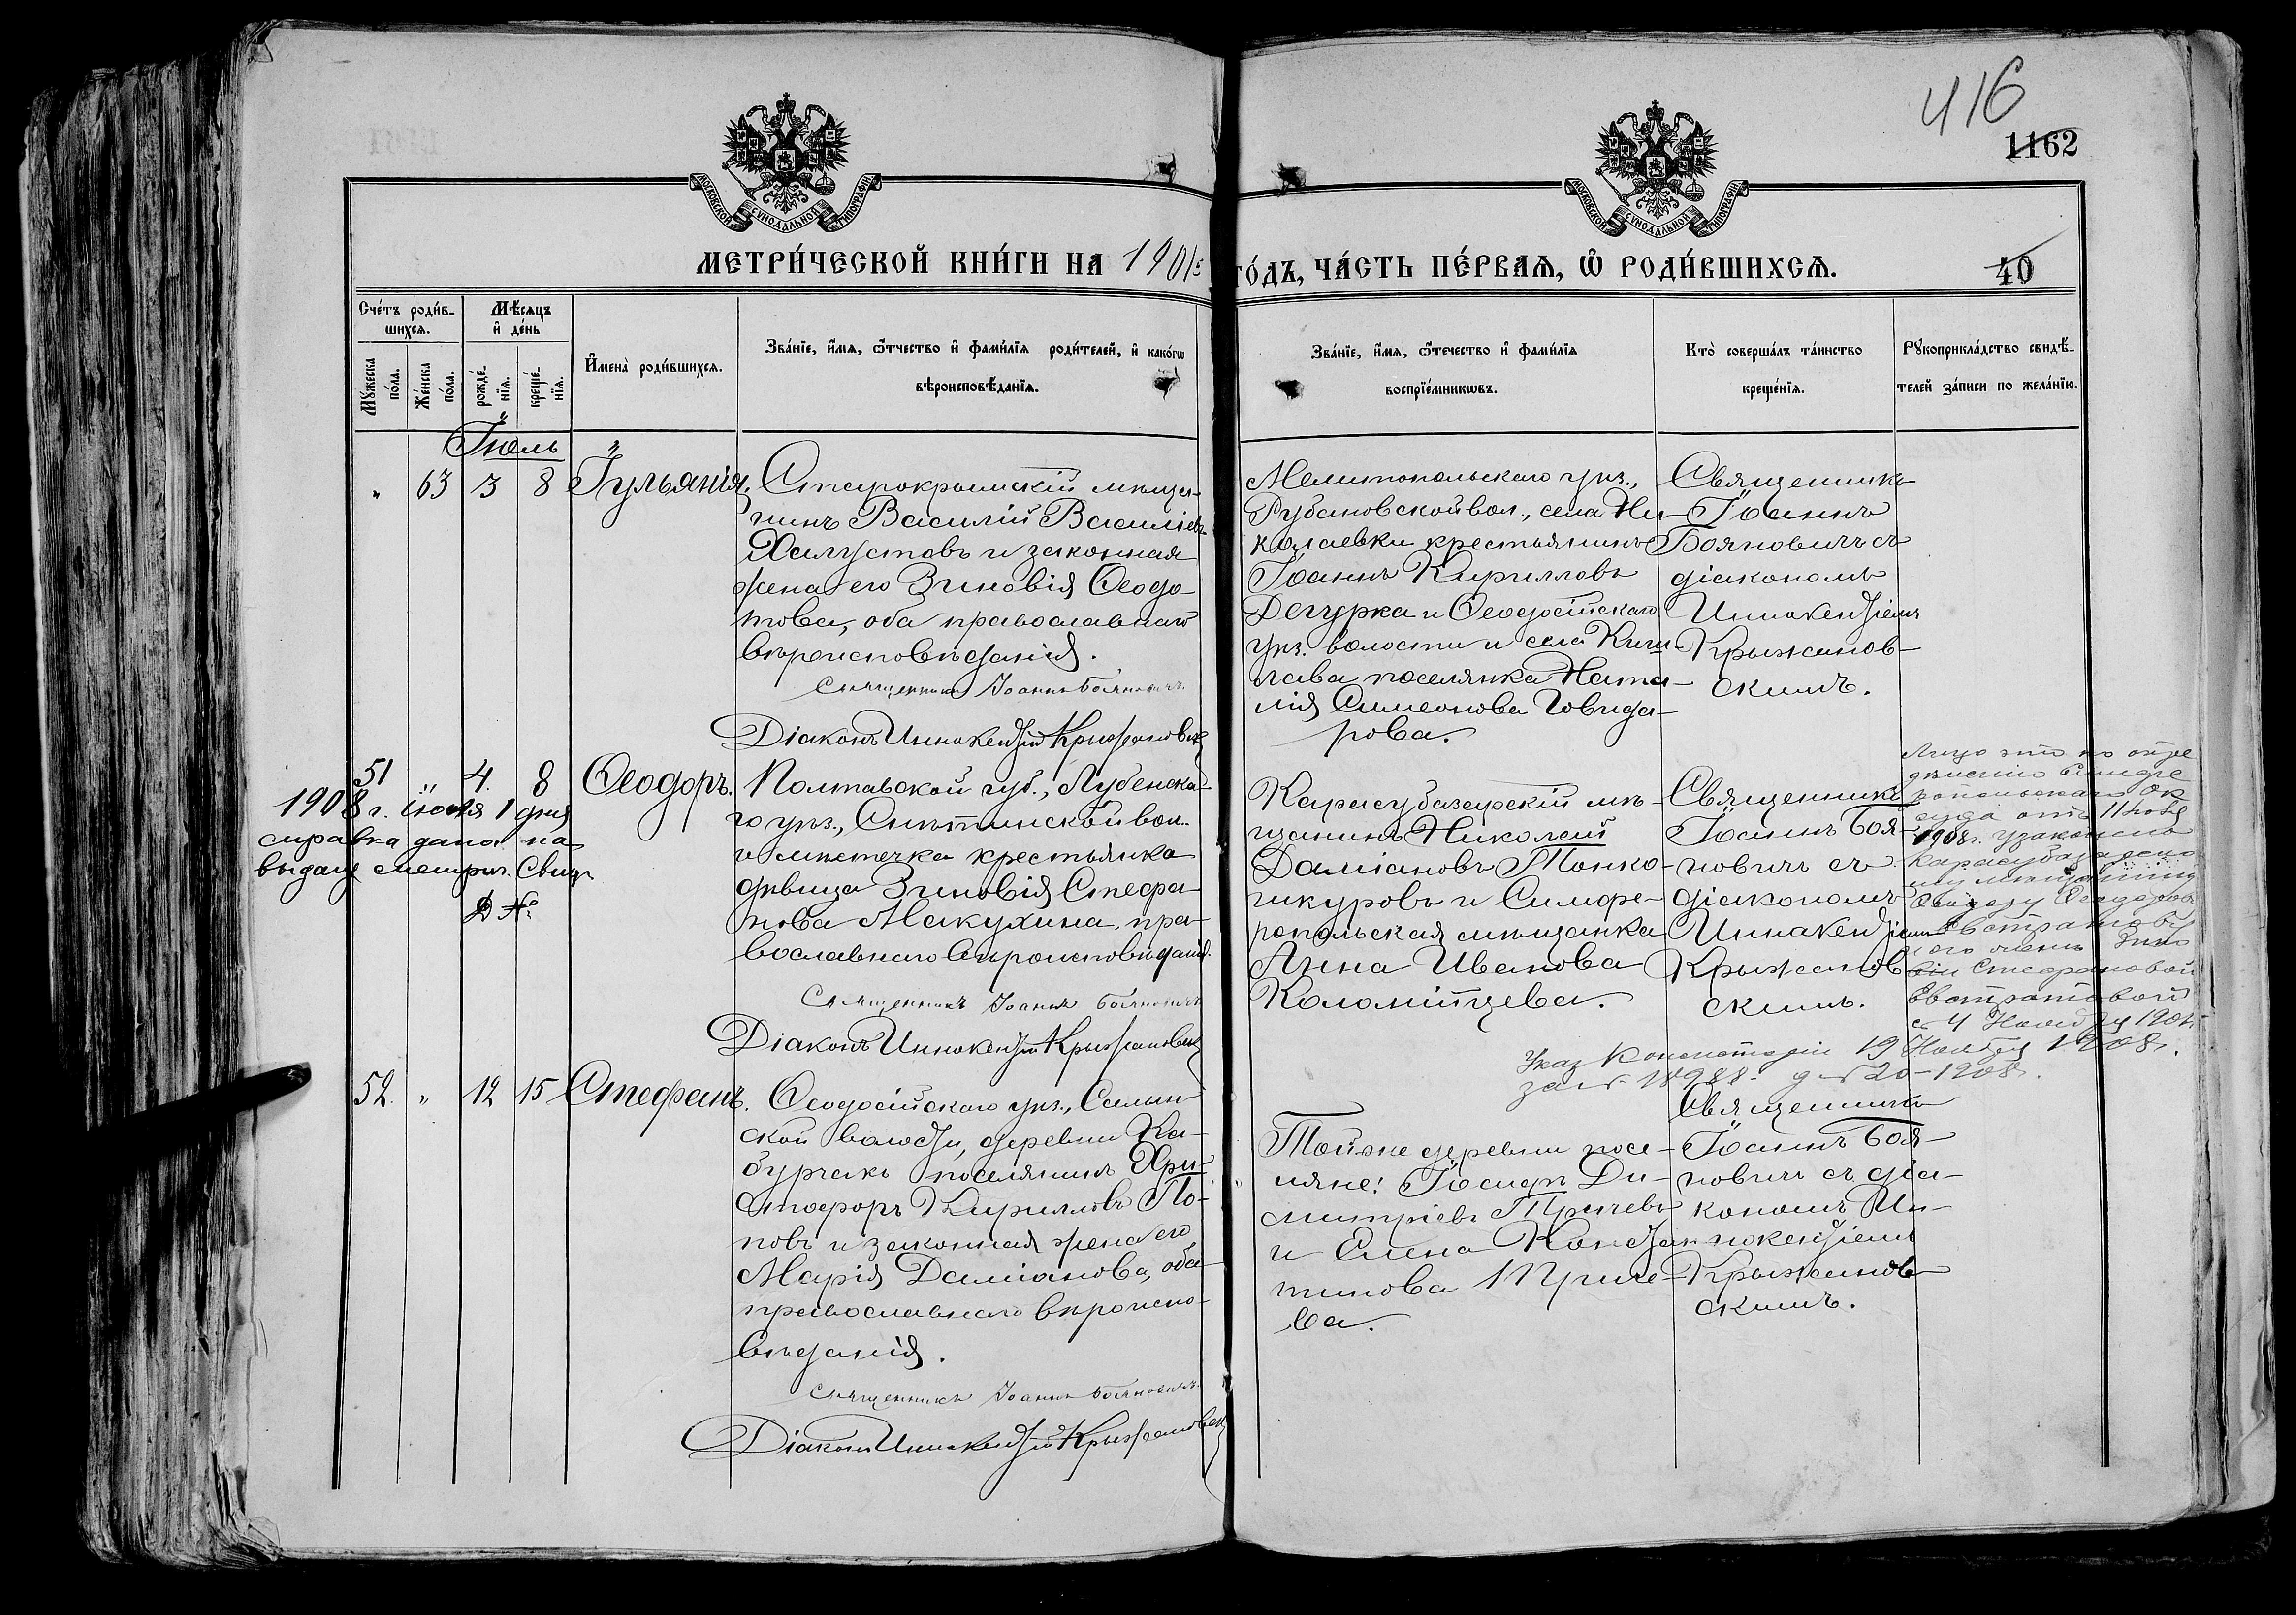 416
1162
МОСКОВСКОЙ СУНОДАЛЬНОЙ ТИПОГРАФІИ
МОСКОВСКОЙ СУНОДАЛЬНОЙ ТИПОГРАФІИ
МЕТРИ́ЧЕСКОЙ КНИ́ГИ НА 190
ГО́ДЪ, ЧА́СТЬ ПЕ́РВАѦ, Ѡ҆ РОДИ́ВШИХСѦ.
40
Сче́тъ роди́в-
шихсѧ.
Мꙋ́жеска по́ла.
Же́нска по́ла.
Мѣ́сѧцъ
и҆ де́нь
рожде́-
нїѧ.
креще́-
нїѧ.
И҆мена̀ роди́вшихсѧ.
Зва́нїе, и҆́мѧ, ѻ҆́тчество и҆ фами́лїѧ роди́телей, и҆ како́гѡ
вѣроисповѣ́данїѧ.
Зва́нїе, и҆́мѧ, ѻ҆те́чество и҆ фами́лїѧ
воспрїе́мникѡвъ.
Кто̀ соверша́лъ та́инство
креще́нїѧ.
Рꙋкоприкла́дство свидѣ́-
телей за́писи по жела́нїю.
Іюль
" 63 3 8 Іульянія.
Старокрымскій мѣща-
нинъ Василій Васильевъ
Халустовъ и законная
жена его Зиновія Ѳеодо-
това, оба православнаго
вѣроисповѣданія.
Священникъ Іоаннъ Бояновичъ
Діаконъ Иннокентій Крыжановскій
Мелитопольскаго уѣз.,
Рубановской вол., села Ни-
колаевки крестьянинъ
Іоаннъ Кирилловъ
Дегурка и Ѳеодосійскаго
уѣз. волости и села Киш-
лава поселянка Ната-
лія Симеонова Говида-
рова.
Священникъ
Іоаннъ
Бояновичъ съ
діакономъ
Иннокентіемъ
Крыжанов-
скимъ.
51 " 4 8 Ѳеодоръ.
1908 г. іюля 1 дня
справка дана на
выдачу метрич. свид.
№
Полтавской губ., Лубенска-
го уѣз., Снѣтинской вол.
и мѣстечка крестьянка
дѣвица Зиновія Стефа-
нова Макухина, пра-
вославнаго вѣроисповѣданія.
Священникъ Іоаннъ Бояновичъ
Діаконъ Иннокентій Крыжановскій
Карасубазарскій мѣ-
щанинъ Николай
Даміановъ Понко-
чукуровъ и Симфе-
ропольская мѣщанка
Анна Иванова
Коломійцева.
Священникъ
Іоаннъ Боя-
новичъ съ
діакономъ
Иннокентіемъ
Крыжанов-
скимъ.
Лицо это по опре
дѣленію Симфе
ропольскаго Ок
суда отъ 11 нояб
1908 г. узаконено
Карасубазарско
му мѣщанину
Ѳеодору Ѳеодорову
Евстратову
и его женѣ Зино
віи Стефановой
Евстратовой
с 4
Указ Консисторіи 19 Ноября 1908 г.
за № 18988 - 1908.
52. " 12 15 Стефанъ.
Ѳеодосійскаго уѣз., Салын-
ской волости, деревни Ка-
бурчакъ поселянинъ Хри-
стофоръ Кирилловъ По-
повъ и законная жена его
Марія Даміанова, оба
православнаго вѣроиспо-
вѣданія.
Священникъ Іоаннъ Бояновичъ
Діаконъ Иннокентій Крыжановскій
Той же деревни посе-
ляне: Іосифъ Ди-
митріевъ Причевъ
и Елена Констан-
тинова Приче-
ва.
Священникъ
Іоаннъ Боя-
новичъ съ діа-
кономъ Ин-
нокентіемъ
Крыжанов-
скимъ.